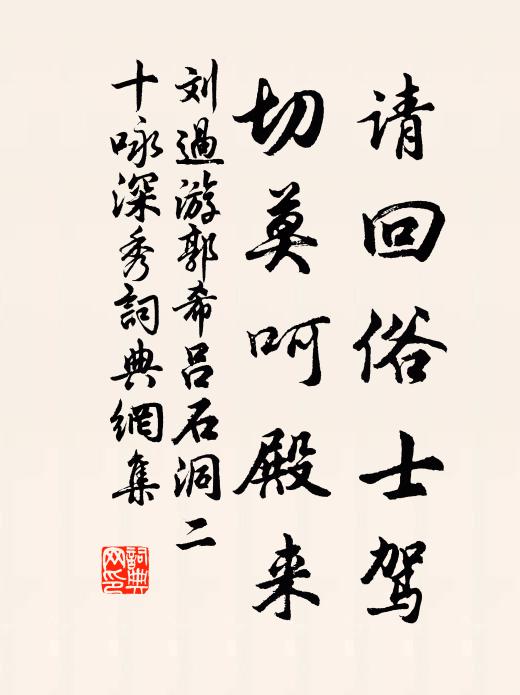 请回俗士驾
切莫呵殿来
刘過游郭希吕石洞二
十咏深秀詞典網集
詞典网印